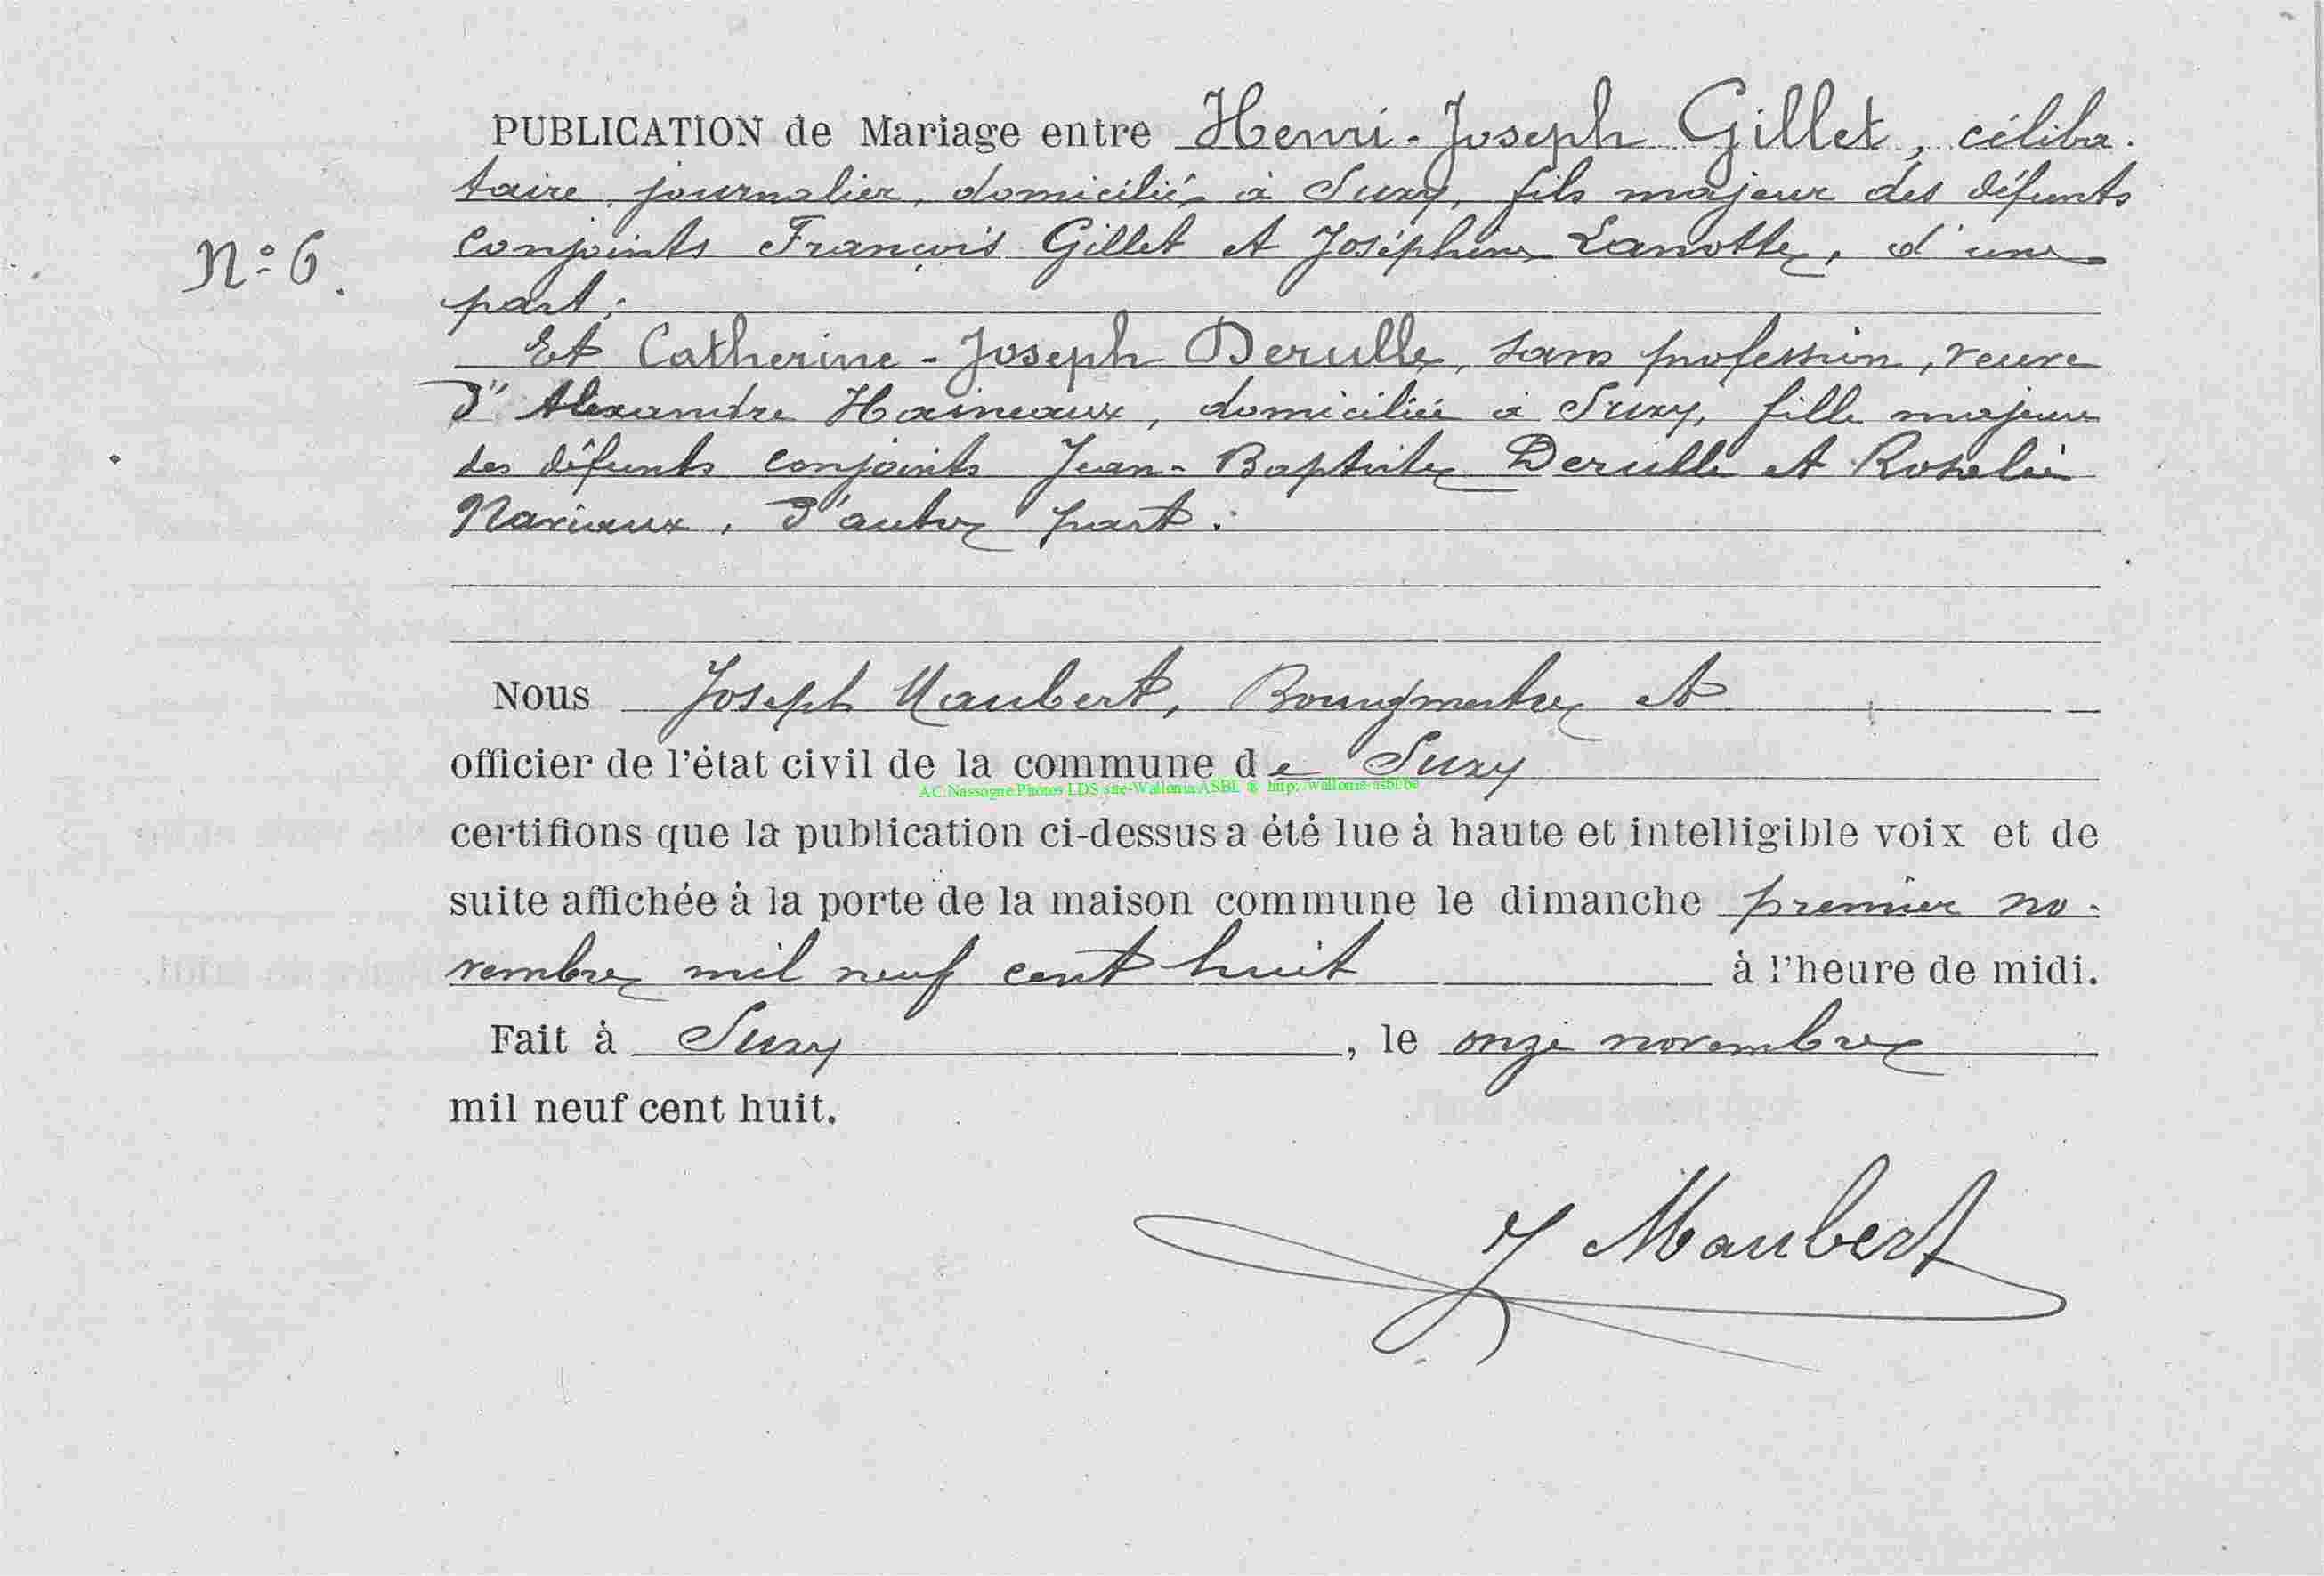 PUBLICATION de Mariage entre Henri-Joseph Gillet, céliba-
taire, journalier, domicilié à Suxy, fils majeur des défunts
N° 6.
conjoints François Gillet et Joséphine Lanotte, d'une
part;
Et Catherine-Joseph Derulle, sans profession, veuve
d'Alexandre Haineaux, domiciliée à Suxy, fille majeure
des défunts conjoints Jean-Baptiste Derulle et Rosalie
d'autre part.
Nous Joseph Maubert, Bourgmestre et
officier de l'état civil de la commune de Suxy
AC.Nassogne.Photos LDS site-Wallonia ASBL & http://wallonia-asbl.be
certifions que la publication ci-dessus a été lue à haute et intelligible voix et de
suite affichée à la porte de la maison commune le dimanche premier no-
vembre mil neuf cent huit à l'heure de midi.
Fait à Suxy, le onze novembre
mil neuf cent huit.
J Maubert